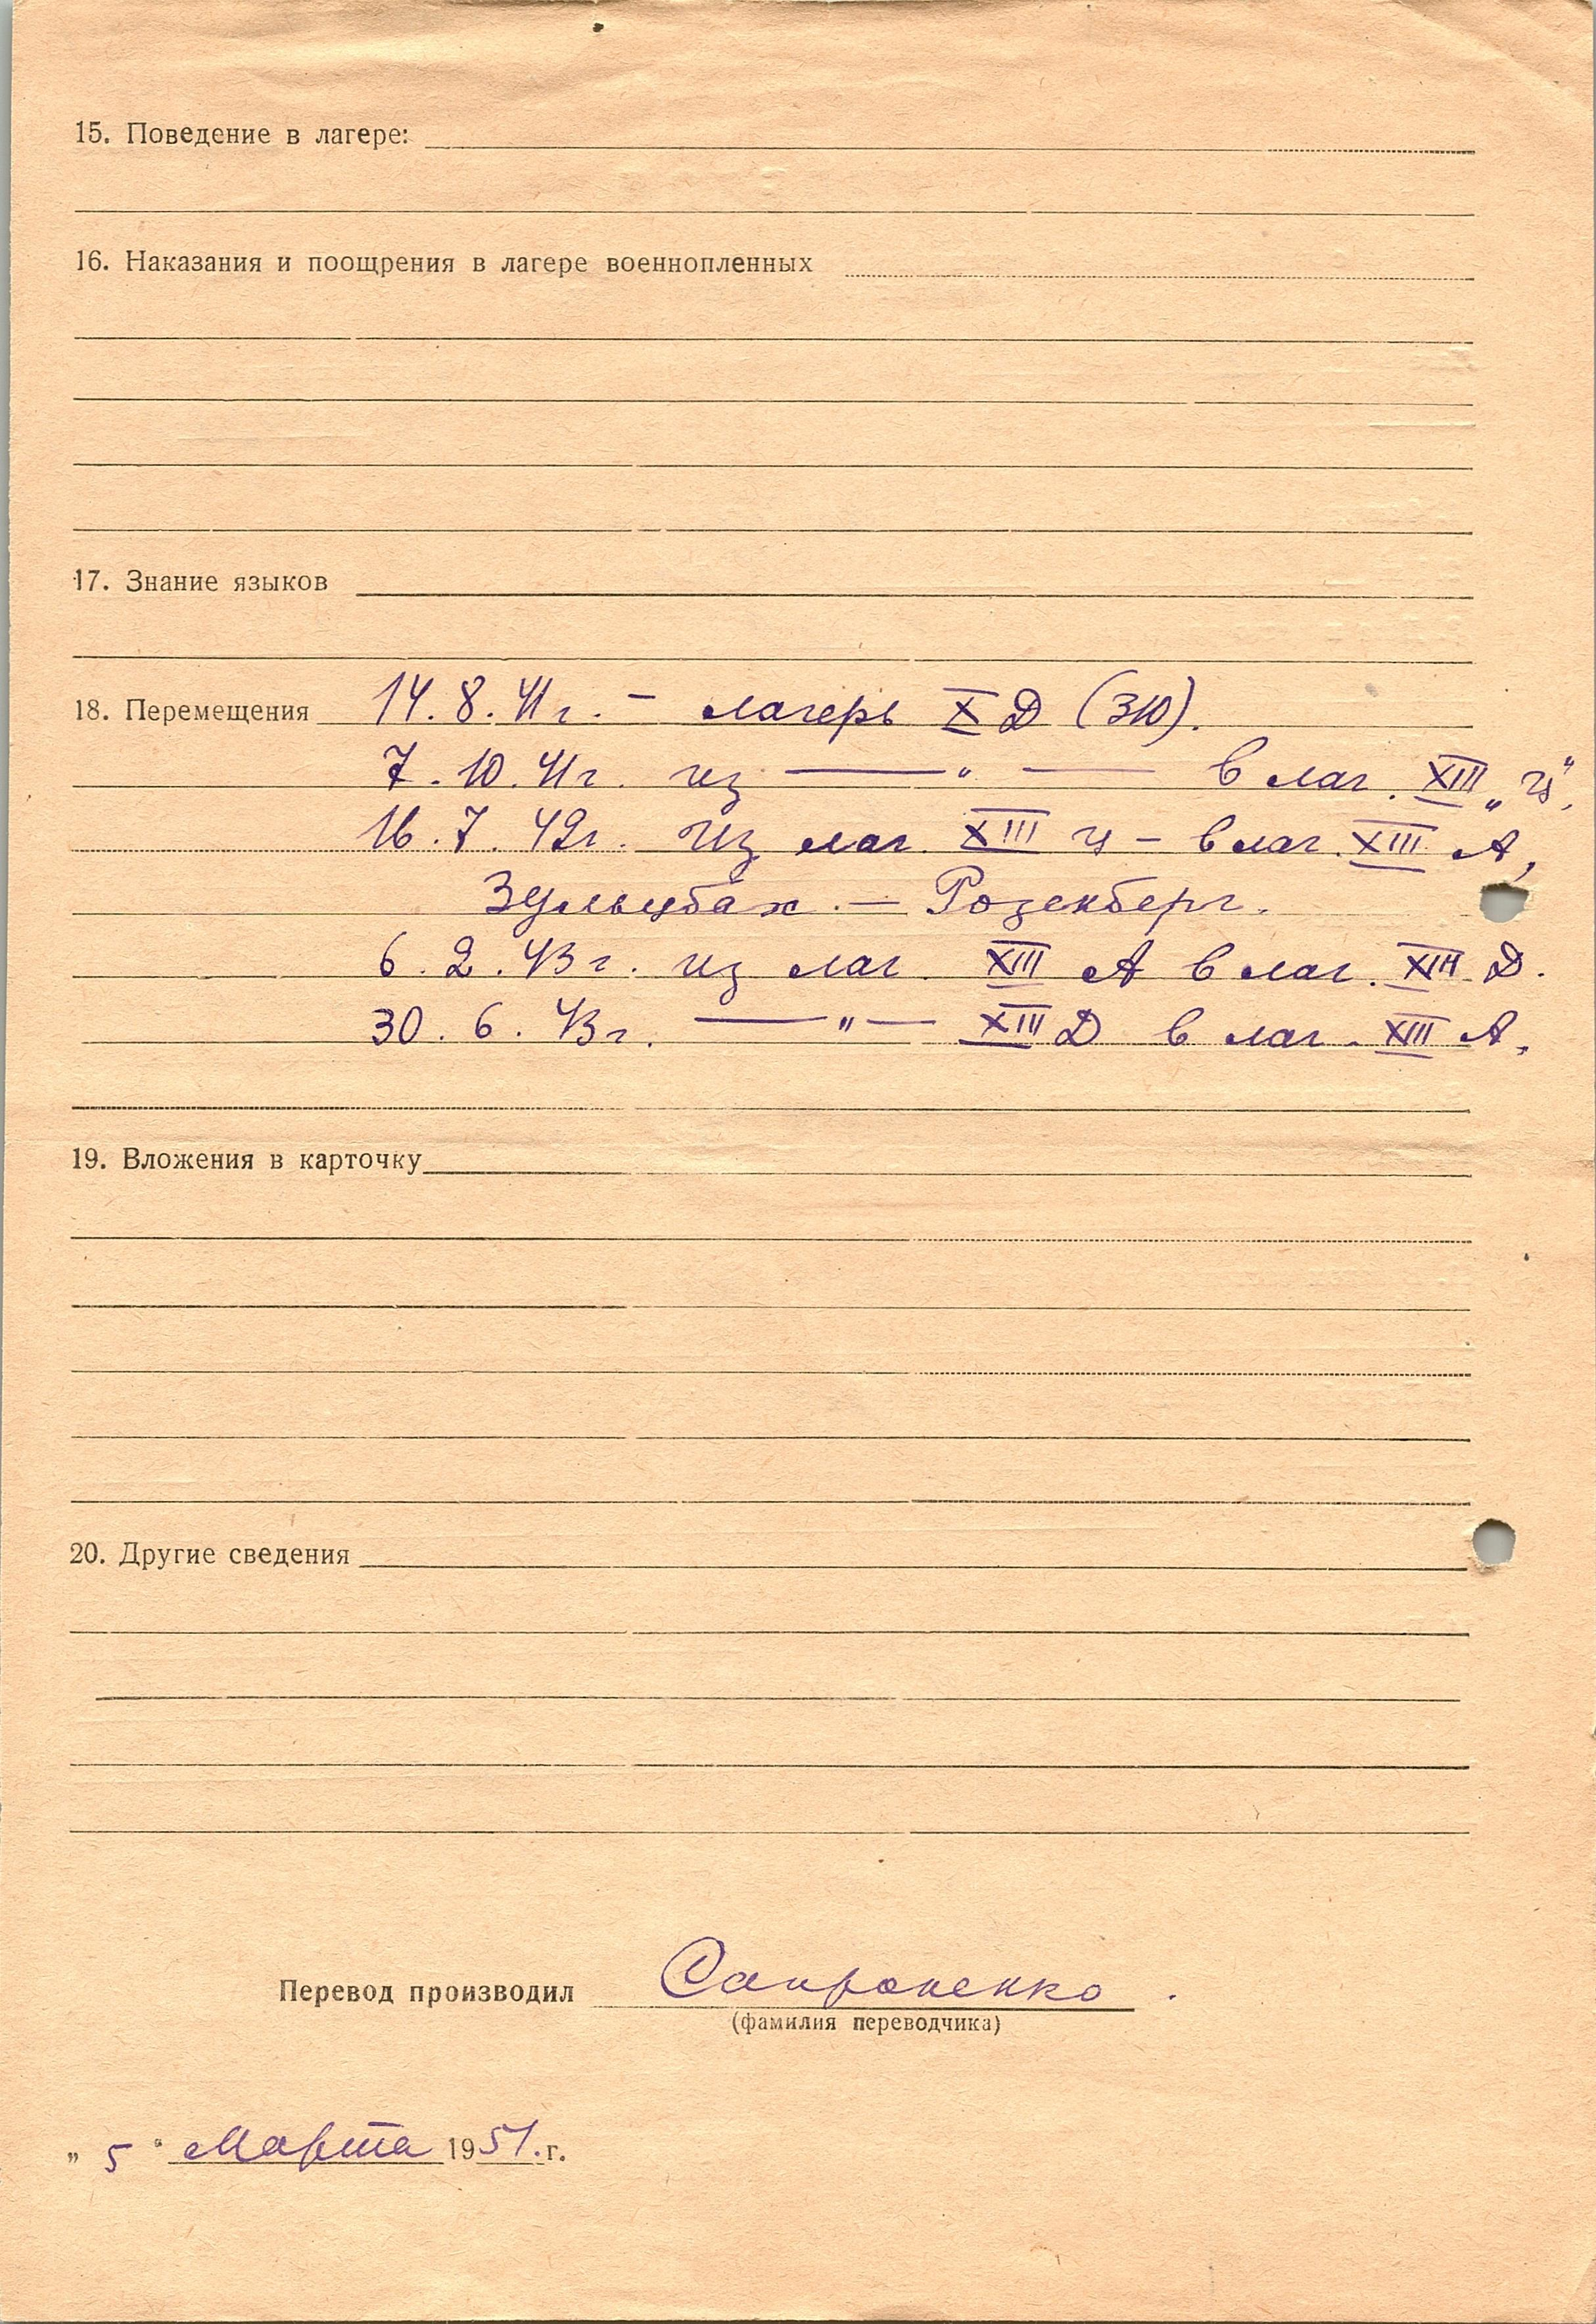 15. Поведение в лагере:
16. Наказания и поощрения в лагере военнопленных
17. Знание языков
18. Перемещения 14.8.41г. – лагерь X Д (310).
7.10.41г. из — " — в лаг. XIII „Ц",
16.7.42г. из лаг. XIII Ц – в лаг. XIII А,
Зульцбах. – Розенберг.
6.2.43г. из лаг. XIII А в лаг. XIII Д.
30.6.43г. — " — XIII Д в лаг. XIII А.
19. Вложения в карточку
20. Другие сведения
Перевод производил Сапроненко.
(фамилия переводчика)
„ 5 " Марта 1951.г.